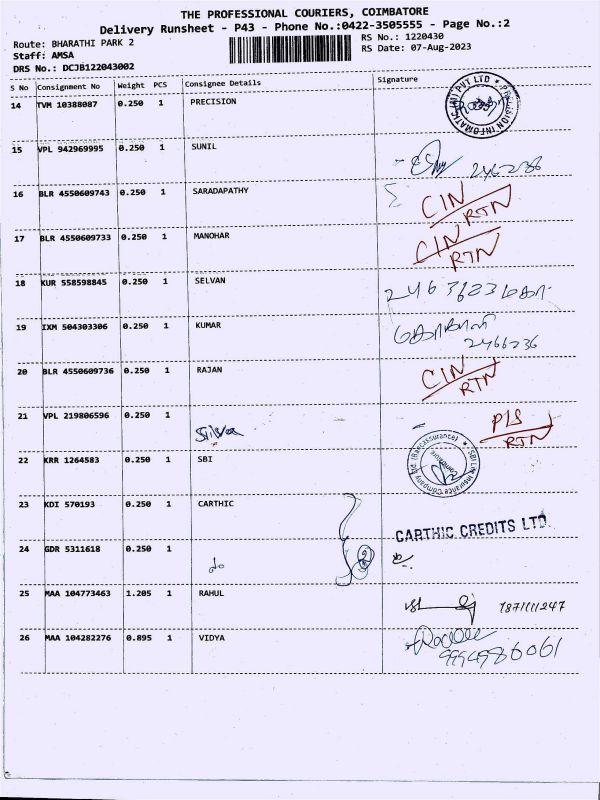 THE PROFESSIONAL COURIERS, COIMBATORE
Delivery Runsheet - P43 - Phone No.:0422-3505555 - Page No.:2
Route: BHARATHI PARK 2
RS No.: 1220430
Staff: AMSA
RS Date: 07-Aug-2023
DRS No.: DCJB122043002
S No Consignment No Weight PCS Consignee Details Signature
14 TVM 10388087 0.250 1 PRECISION
PRECISION INFORMATIC (M) PVT LTD
15 VPL 942969995 0.250 1 SUNIL
2462286
16 BLR 4550609743 0.250 1 SARADAPATHY
CIN
RTN
17 BLR 4550609733 0.250 1 MANOHAR
CIN
RTN
18 KUR 558598845 0.250 1 SELVAN
2463623
19 IXM 504303306 0.250 1 KUMAR
2466236
20 BLR 4550609736 0.250 1 RAJAN
CIN
RTN
21 VPL 219806596 0.250 1
Silver
P/S
RTN
22 KRR 1264583 0.250 1 SBI
SBI Life Insurance Company Ltd. (Bancassurance)
Coimbatore
23 KDI 570193 0.250 1 CARTHIC
CARTHIC CREDITS LTD.
24 GDR 5311618 0.250 1
25 MAA 104773463 1.205 1 RAHUL
1871111247
26 MAA 104282276 0.895 1 VIDYA
9994986061